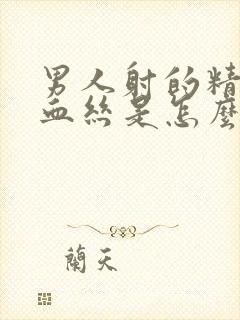 男人射的精
血丝是怎麼
蘭天